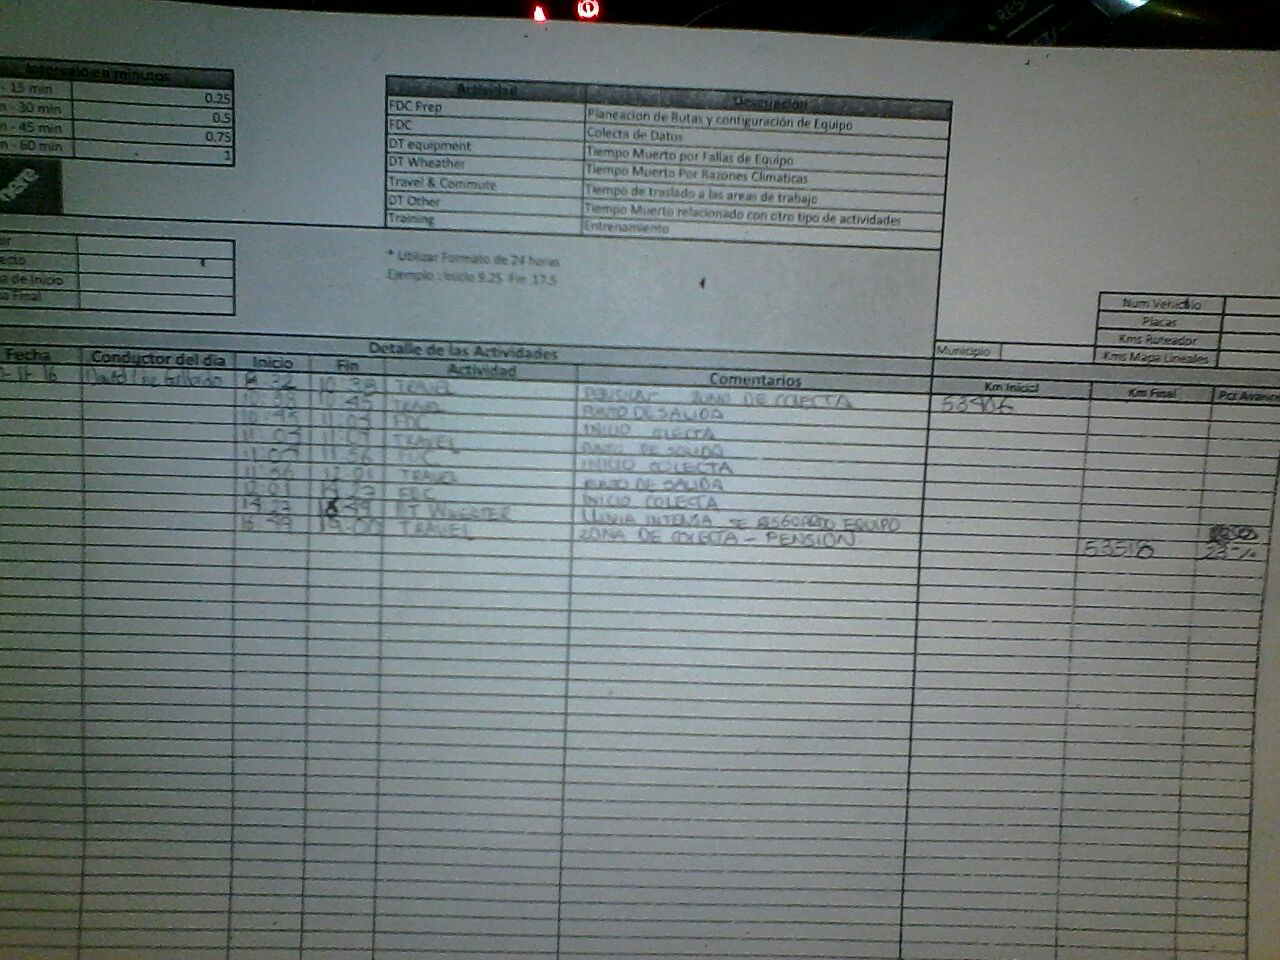 RES
Intervalo en minutos
- 15 min 0.25
n - 30 min 0.5
n - 45 min 0.75
n - 60 min 1
here
Actividad Descripcion
FDC Prep Planeacion de Rutas y configuración de Equipo
FDC Colecta de Datos
DT equipment Tiempo Muerto por Fallas de Equipo
DT Wheather Tiempo Muerto Por Razones Climaticas
Travel & Commute Tiempo de traslado a las areas de trabajo
DT Other Tiempo Muerto relacionado con otro tipo de actividades
Training Entrenamiento
* Utilizar Formato de 24 horas
Ejemplo : Inicio 9.25 Fin 17.5
ecto
a de Inicio
a Final
Num Vehiculo
Placas
Kms Ruteador
Kms Mapa Lineales
Municipio
Detalle de las Actividades
Fecha Conductor del dia Inicio Fin Actividad Comentarios Km Inicial Km Final Pct Avance
8:32 10:38 TRAVEL PENSION ZONA DE COLECTA 53406
10:45 TRAVEL PUNTO DE SALIDA
10:45 11:03 FDC INICIO COLECTA
11:03 11:07 TRAVEL PUNTO DE SALIDA
11:07 11:56 FDC INICIO COLECTA
11:56 12:01 TRAVEL PUNTO DE SALIDA
12:01 FDC INICIO COLECTA
DT WHEATER LLUVIA INTENSA SE RESGUARDO EQUIPO
19:00 TRAVEL ZONA DE COLECTA - PENSION 53518 23%